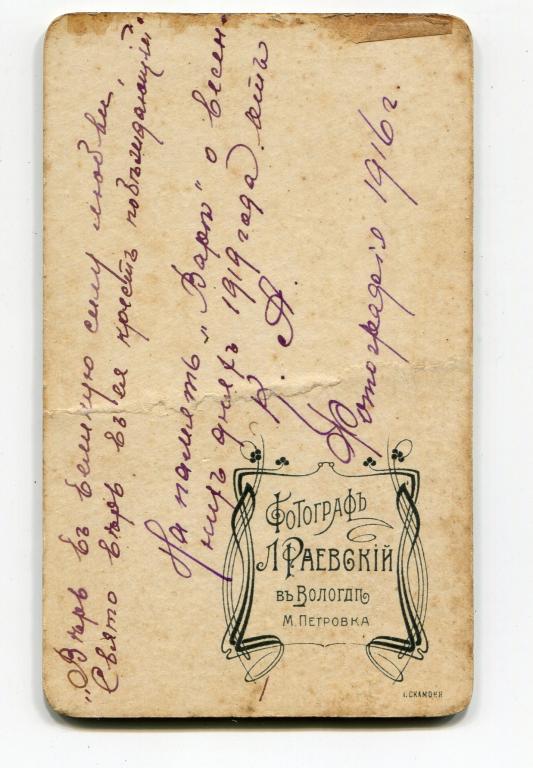 "Вѣрь въ великую силу любви!
Свято вѣрь въ ея крестъ побѣждающій"
На память "Варѣ" о весен-
нихъ дняхъ 1919 года отъ
К. А.
Фотографія 1916 г.
ФОТОГРАФЪ
Л РАЕВСКІЙ
ВЪ ВОЛОГДѢ
М. ПЕТРОВКА
І. СКАМОНИ